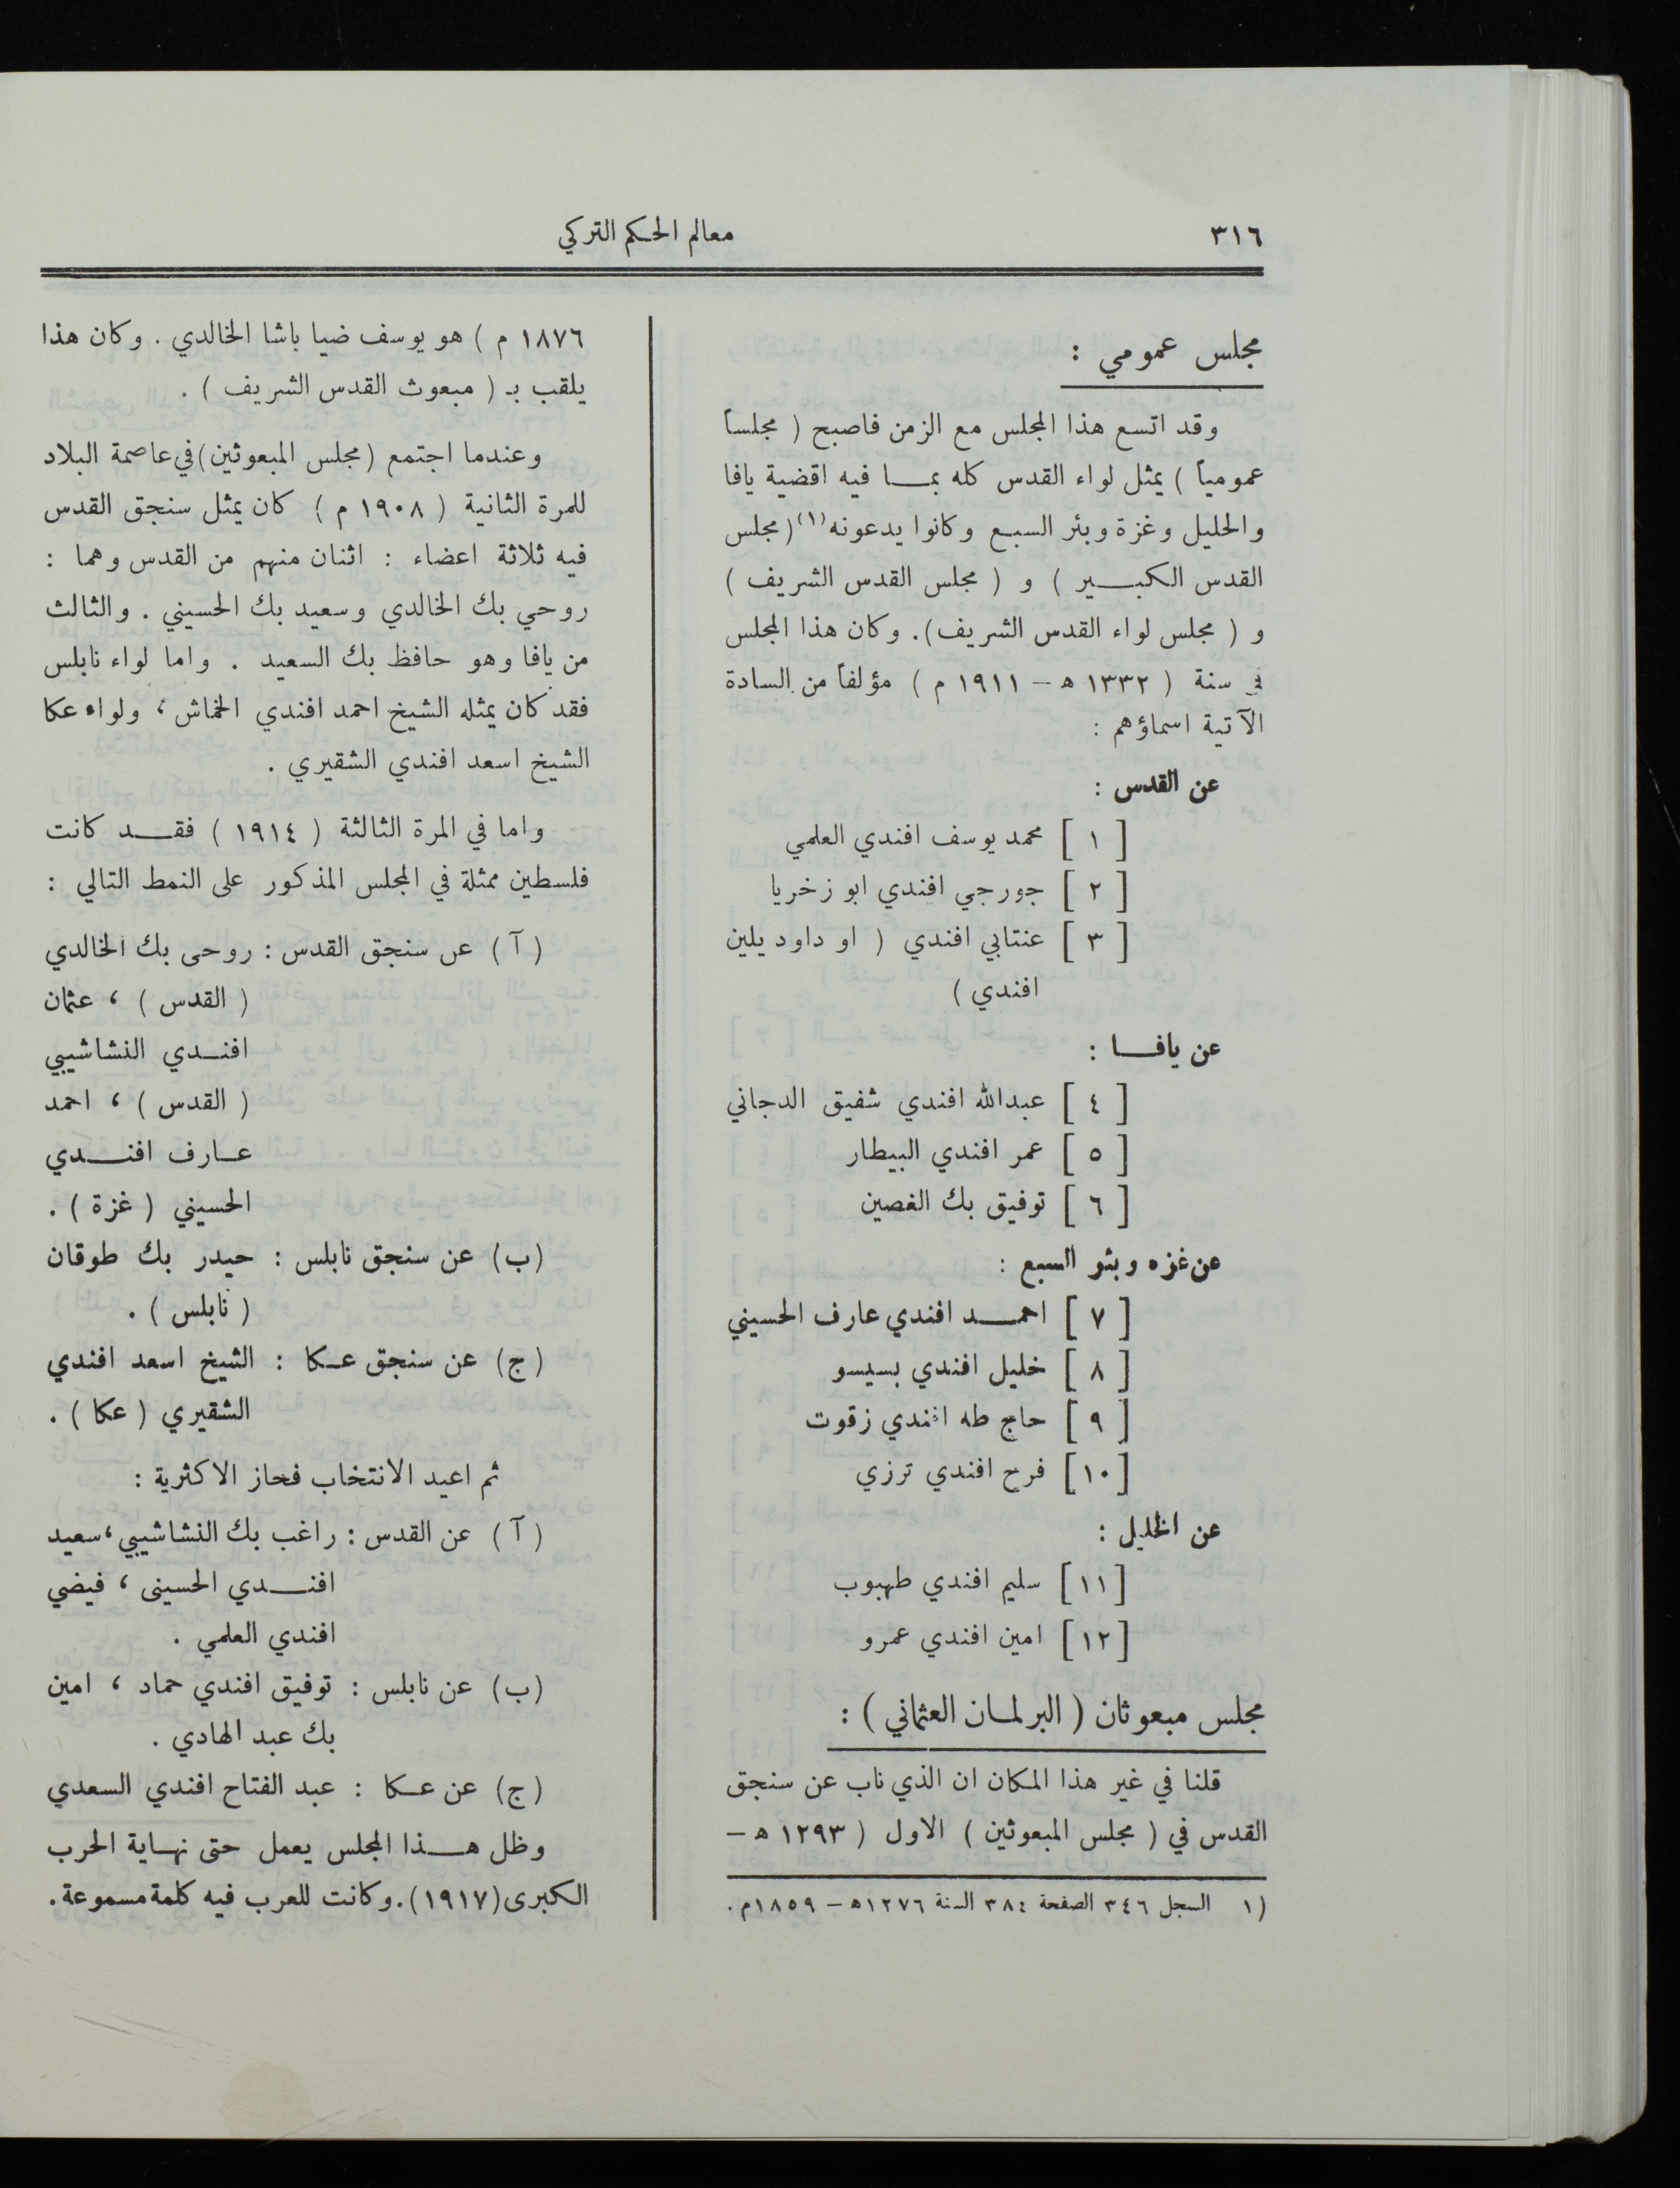 ٣١٦
معالم الحكم التركي
مجلس عمومي :
وقد اتسع هذا المجلس مع الزمن فاصبح ( مجلساً
عمومياً ) يمثل لواء القدس كله بمـــا فيه اقضية يافا
والخليل وغزة وبئر السبع وكانوا يدعونه(١) (مجلس
القدس الكبـــير ) و ( مجلس القدس الشريف )
و ( مجلس لواء القدس الشريف). وكان هذا المجلس
في سنة ( ١٣٣٢ ه – ١٩١١ م ) مؤلفاً من السادة
الآتية اسماؤهم :
عن القدس :
[ ١ ] محمد يوسف افندي العلمي
[ ٢ ] جورجي افندي ابو زخريا
[ ٣ ] عنتابي افندي ( او داود يلين
افندي )
عن يافـــا :
[ ٤ ] عبدالله افندي شفيق الدجاني
[ ٥ ] عمر افندي البيطار
[ ٦ ] توفيق بك الغصين
عن غزه وبئر السبع :
[ ٧ ] احمـــد افندي عارف الحسيني
[ ٨ ] خليل افندي بسيسو
[ ٩ ] حاج طه افندي زقوت
[ ١٠] فرح افندي ترزي
عن الخليل :
[ ١١] سليم افندي طهبوب
[ ١٢] امين افندي عمرو
مجلس مبعوثان ( البرلمـان العثماني ) :
قلنا في غير هذا المكان ان الذي ناب عن سنجق
القدس في ( مجلس المبعوثين ) الاول ( ١٢٩٣ ه –
١) السجل ٣٤٦ الصفحة ٣٨٤ السنة ١٢٧٦ه – ١٨٥٩م.
١٨٧٦ م ) هو يوسف ضيا باشا الخالدي . وكان هذا
يلقب بـ ( مبعوث القدس الشريف ) .
وعندما اجتمع (مجلس المبعوثين) في عاصمة البلاد
للمرة الثانية ( ١٩٠٨ م ) كان يمثل سنجق القدس
فيه ثلاثة اعضاء : اثنان منهم من القدس وهما :
روحي بك الخالدي وسعيد بك الحسيني . والثالث
من يافا وهو حافظ بك السعيد . واما لواء نابلس
فقد كان يمثله الشيخ احمد افندي الخماش ، ولواء عكا
الشيخ اسعد افندي الشقيري .
واما في المرة الثالثة ( ١٩١٤ ) فقـــد كانت
فلسطين ممثلة في المجلس المذكور على النمط التالي :
( آ ) عن سنجق القدس : روحى بك الخالدي
( القدس ) ، عثمان
افنـــدي النشاشيبي
( القدس ) ، احمد
عـارف افنـــدي
الحسيني ( غزة ) .
(ب) عن سنجق نابلس : حيدر بك طوقان
( نابلس ) .
(ج) عن سنجق عـكا : الشيخ اسعد افندي
الشقيري ( عكا ) .
ثم اعيد الانتخاب فحاز الاكثرية :
( آ ) عن القدس : راغب بك النشاشيبي ، سعيد
افنـــدي الحسينى ، فيضي
افندي العلمي .
(ب) عن نابلس : توفيق افندي حماد ، امين
بك عبد الهادي .
(ج) عن عـكا : عبد الفتاح افندي السعدي
وظل هـــذا المجلس يعمل حتى نهـاية الحرب
الكبرى (١٩١٧). وكانت للعرب فيه كلمة مسموعة.